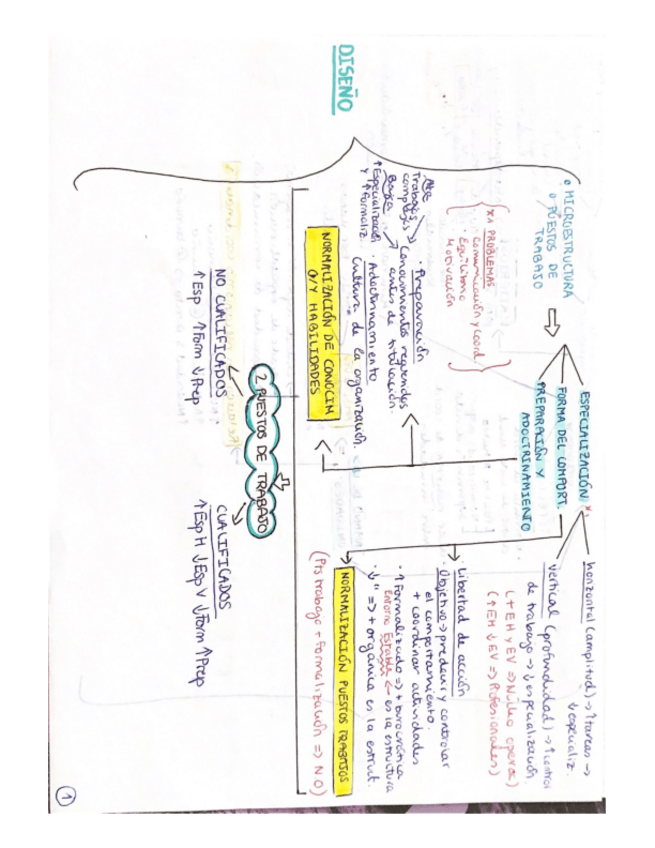 DISEÑO
o MICROESTRUCTURA
o PUESTOS DE
TRABAJO
*1 PROBLEMAS
Comunicación y coord
· Equilibrio
Motivación
ESPECIALIZACIÓN *1
FORMA DEL COMPORT.
PREPARACIÓN Y
ADOCTRINAMIENTO
horizontal (amplitud) → ↑ tareas →
↓ especializ.
vertical (profundidad) → ↑ control
de trabajo → ↓ especialización.
(+ EH y EV => Núcleo operac)
(↑ EH ↓ EV => Profesionales)
libertad de acción
· Objetivo → predecir y controlar
el comportamiento.
+ coordinar actividades
· ↑ Formalizado => + burocrática
Entorno Estable ← es la estructura
· ↓ " => + orgánica es la estrut.
NORMALIZACIÓN PUESTOS TRABAJOS
(Pts trabajo + formalización => NO)
· Preparación
Conocimientos requeridos
antes de titulación.
· Adoctrinamiento
Cultura de la organización.
Alta
Trabajos
complejos
Baja
↑ Especializaci
y ↑ Formaliz.
NORMALIZACIÓN DE CONOCIM
O/Y HABILIDADES
2 PUESTOS DE TRABAJO
NO CUALIFICADOS
↑ Esp ↑ Form ↓ Prep
CUALIFICADOS
↑ Esp H ↓ Esp V ↓ Form ↑ Prep
1